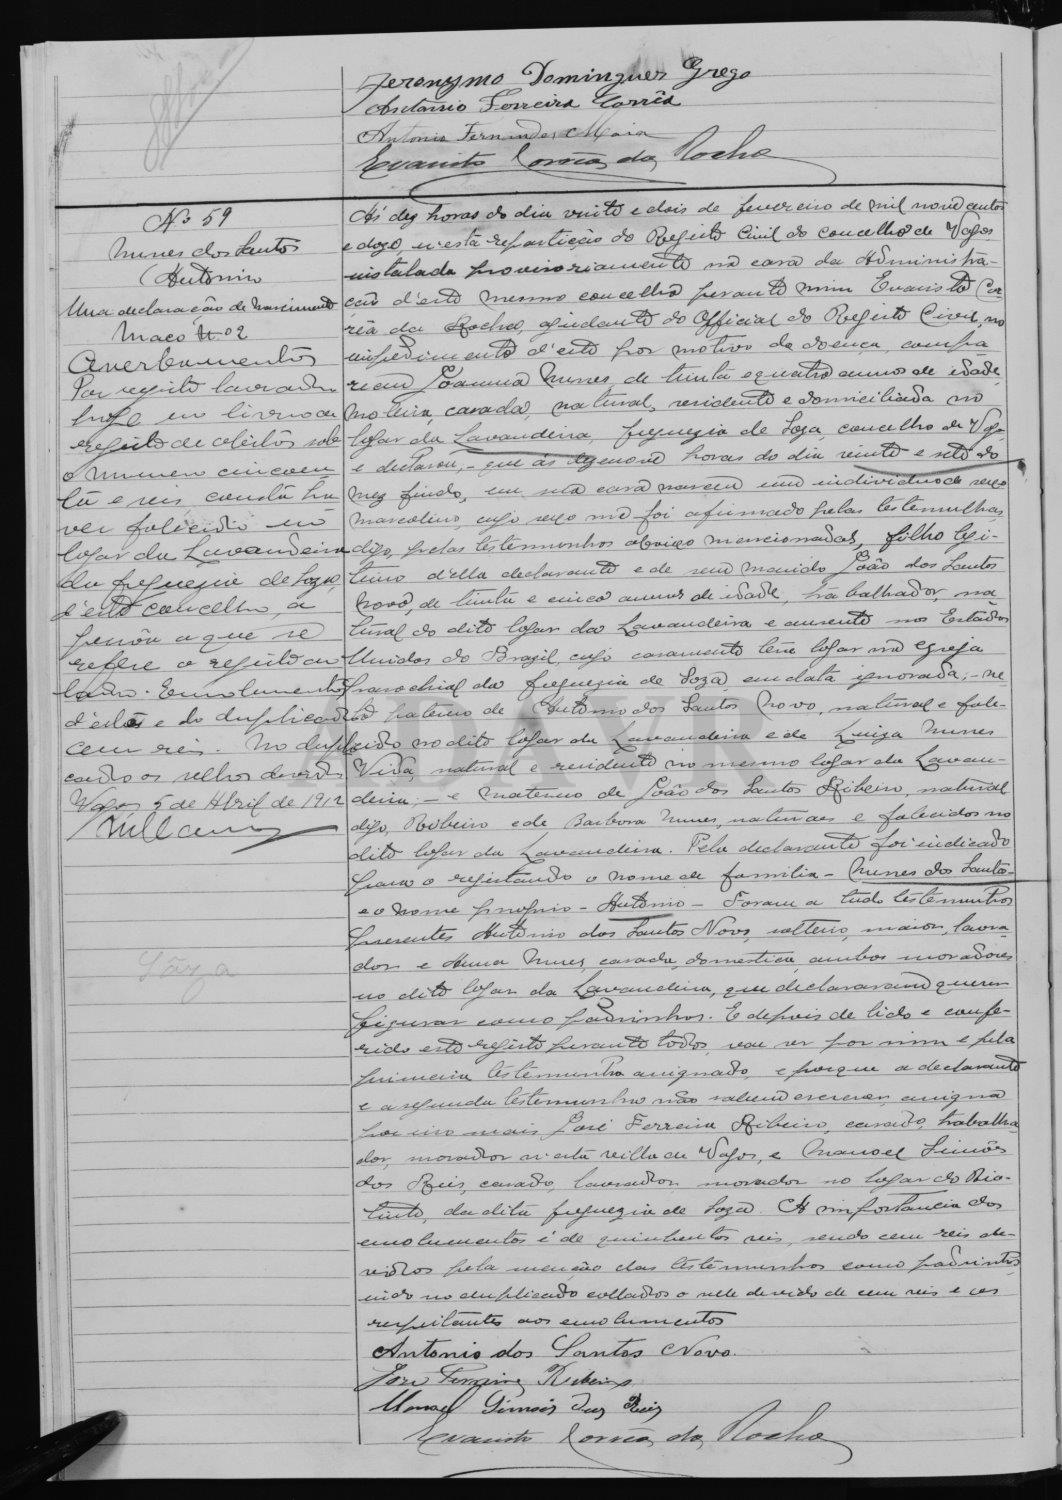 Jeronymo Domingues Grego
Antonio Ferreira Corrêa
Antonio Fernandes Maia
Evaristo Corrêa da Rocha
Nº 59
Nunes dos Santos
Antonio
Uma declaração de nascimento
Maço Nº 2
Averbamentos
Por registo lavrado
hoje no livro de
registo de obitos sob
o numero cincoen-
ta e seis, consta ha
ver falecido no
logar da Lavandeira
da freguezia de Soza,
d'este concelho, a
pessôa a que se
refere o registo ao
lado. Emolumentos
d'este e do duplicado
cem reis. No dupli
cado os sellos devidos
Vagos 5 de Abril de 1912
Sôza
Ás dez horas do dia vinte e dois de fevereiro de mil nove centos
e doze, n'esta repartição do Registo Civil do concelho de Vagos
installada provisoriamente na casa da Administra-
ção d'este mesmo concelho perante mim Evaristo Cor-
rêa da Rocha, ajudante do Official do Registo Civil, no
impedimento d'este por motivo de doença, compa
receu Joanna Nunes, de trinta e quatro annos de idade,
moleira, casada, natural, residente e domiciliada no
logar da Lavandeira, freguezia de Soza, concelho de Vagos
e declarou, - que ás dezenove horas do dia vinte e sete do
mez findo, em sua casa nasceu um individuo de sexo
masculino, cujo sexo me foi afirmado pelas testemulhas,
digo, pelas testemunhas abaixo mencionadas, filho legi-
timo d'ella declarante e de seu marido João dos Santos
Novo, de trinta e cinco annos de idade, trabalhador, na
tural do dito logar da Lavandeira e ausente nos Estados
Unidos do Brazil, cujo casamento teve logar na egreja
parochial da freguezia de Soza em data ignorada; - ne-
to paterno de Antonio dos Santos Novo, natural e fale-
cido no dito logar da Lavandeira e de Luiza Nunes
Vida, natural e residente no mesmo logar da Lavan-
deira; - e materno de João dos Santos Ribeiro, natural
digo, Ribeiro e de Barbora Nunes, naturaes e falecidos no
dito logar da Lavandeira. Pela declarante foi indicado
para o registando o nome de familia - Nunes dos Santos -
e o nome proprio - Antonio - Foram a tudo testemunhas
presentes Antonio dos Santos Novo, solteiro, maior, lavra-
dor e Anna Nunes, casada, domestica, ambos moradores
no dito logar da Lavandeira, que declararam querer
figurar como padrinhos. E depois de lido e confe-
rido este registo perante todos, vae ser por mim e pela
primeira testemunha assignado, e porque a declarante
e a segunda testemunha não sabem escrever, assigna
por isso mais José Ferreira Ribeiro, casado, trabalha-
dor, morador n'esta villa de Vagos, e Manoel Simões
dos Reis, casado, lavrador, morador no logar do Rio-
tinto, da dita freguezia de Soza. A importancia dos
emolumentos é de quinhentos reis, sendo cem reis de-
vidos pela menção das testemunhas como padrinhos,
indo no duplicado collados o sello devido de cem reis e os
respeitantes aos emolumentos
Antonio dos Santos Novo.
José Ferreira Ribeiro
Manoel Simões dos Reis
Evaristo Corrêa da Rocha